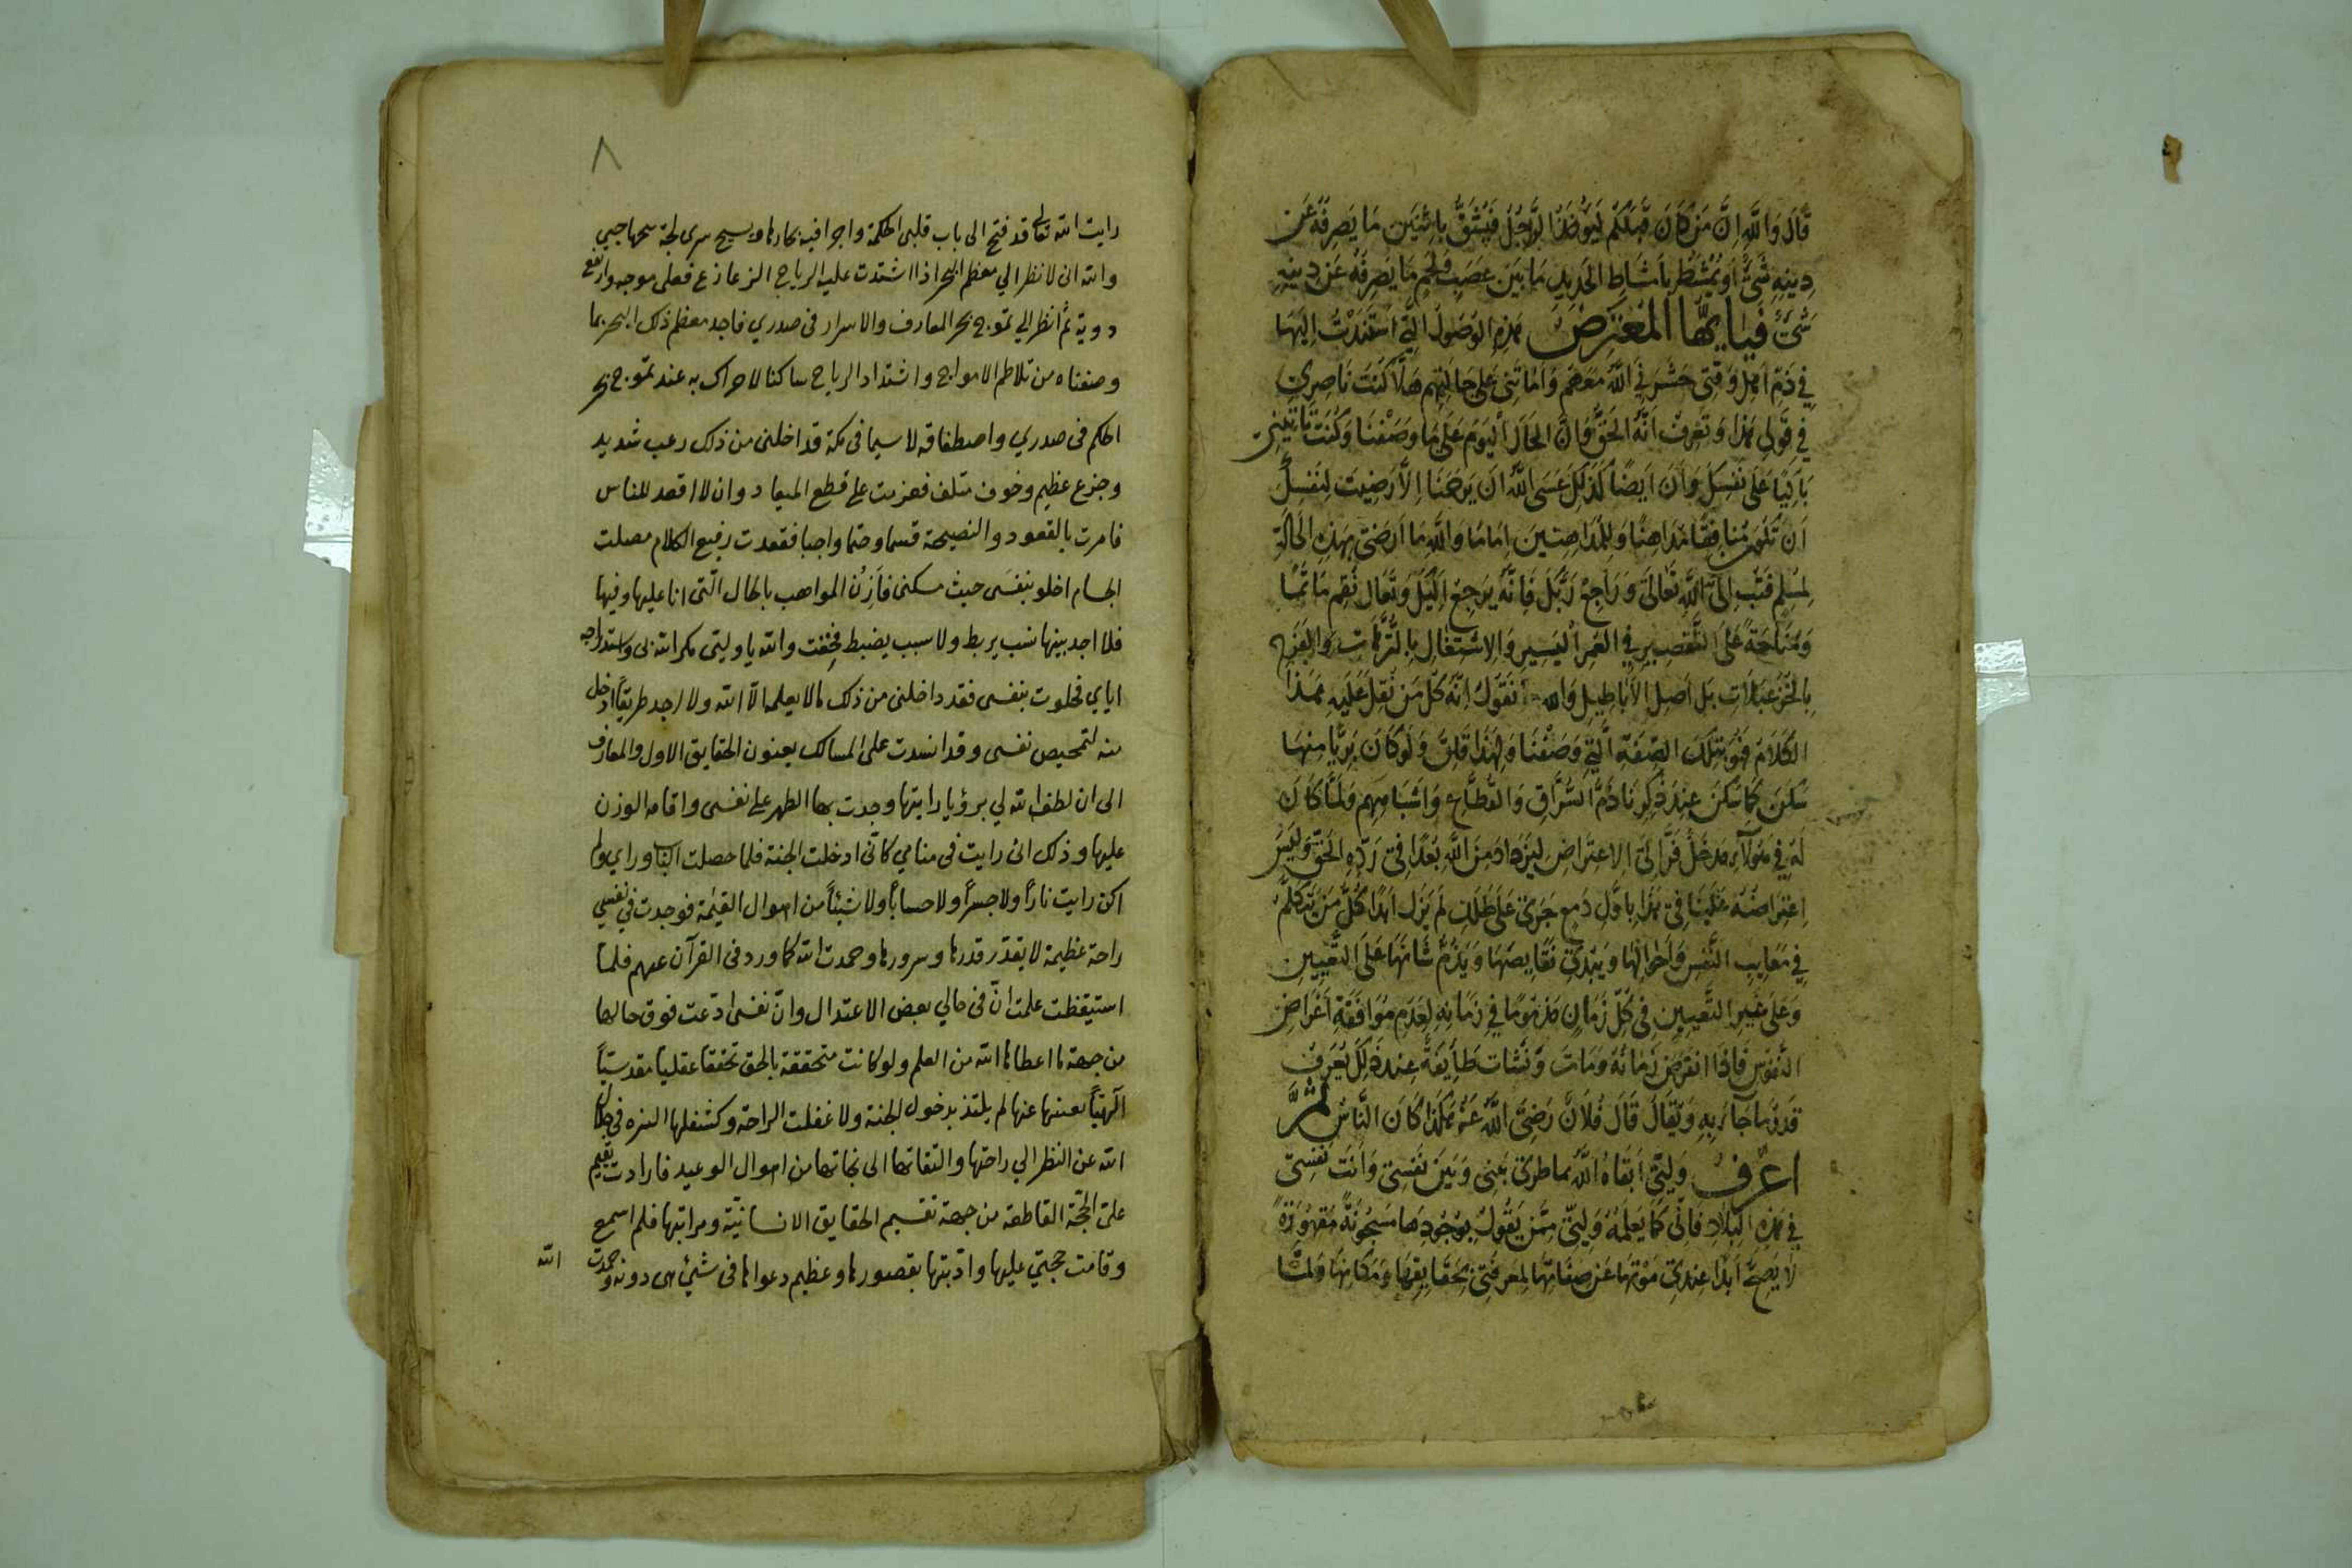 قَالَ وَاللهِ اِنَّ مَنْ كَانَ قَبْلَكُمْ لَيُؤْخَذُ الرَّجُلُ فَيُشَقُّ بِاثْنَيْنِ مَا يَصْرِفُهُ عَنْ
دِينِهِ شَيْءٌ اَوْ يُمْشَطُ بِاَمْشَاطِ الْحَدِيدِ مَا بَيْنَ عَصَبٍ وَلَحْمٍ مَا يَصْرِفُهُ عَنْ دِينِهِ
شَيْءٌ فَيَا اَيُّهَا الْمُعْتَرِضُ بهذِهِ الْوُصُولِ الَّتِي اسْتَنَدْتُ اِلَيْهَا
فِي ذَمِّ اَهْلِ وَقْتِي حَشَرَنِي اللهُ مَعَهُمْ وَاَمَاتَنِي عَلَى حَالَتِهِمْ هَلَّا كُنْتَ نَاصِرِي
فِي قَوْلِي هٰذَا وَتَعْرِفُ اَنَّهُ الْحَقُّ وَاَنَّ الْحَالَ الْيَوْمَ عَلَى مَا وَصَفْنَا وَكُنْتَ تَاْتِينِي
بَاكِيًا عَلَى نَفْسِكَ وَاَنَا اَيْضًا كَذٰلِكَ عَسَى اللهُ اَنْ يَرْحَمَنَا اِلَّا رَضِيتَ لِنَفْسِكَ
اَنْ تَكُونَ مُنَافِقًا مُدَاهِنًا وَلِلْمُدَاهِنِينَ اِمَامًا وَاللهِ مَا اَرْضَى بِهٰذِهِ الْحَالَةِ
لِمُسْلِمٍ فَتُبْ اِلَى اللهِ تَعَالَى وَرَاجِعْ رَبَّكَ فَاِنَّهُ يَرْجِعُ اِلَيْكَ وَتَعَالَ نُقِمْ مَاْتَمًا
وَمَنَاحَةً عَلَى التَّقْصِيرِ فِي الْعُمْرِ الْيَسِيرِ وَالاِشْتِغَالِ بِالتُّرَّهَاتِ وَالْفَرَحِ
بِالْخُزَعْبِلَاتِ بَلْ اَصْلُ الْاَبَاطِيلِ وَالله نَقُولُ اِنَّهُ كُلُّ مَنْ ثَقُلَ عَلَيْهِ هٰذَا
الْكَلَامُ فَهُوَ بِتِلْكَ الصِّفَةِ الَّتِي وَصَفْنَا وَلِهٰذَا قَلِقَ وَلَوْ كَانَ بَرِيًّا مِنْهَا
سَكَنَ كَمَا سَكَنَ عِنْدَ ذِكْرِنَا ذَمَّ السُّرَّاقِ وَالْقُطَّاعِ وَاَشْبَاهِهِمْ وَلَمَّا كَانَ
لَهُ فِي هَؤُلَآءِ مَدْخَلٌ فَرَّ اِلَى الاِعْتِرَاضِ لِيَزْدَادَ مِنَ اللهِ بُعْدًا فِي رَدِّهِ الْحَقَّ وَلَيْسَ
اِعْتِرَاضُهُ عَلَيْنَا فِي هٰذَا بِاَوَّلِ دَمْعٍ جَرَى عَلَى طَلَلٍ لَمْ يَزَلْ اَبَدًا كُلُّ مَنْ يَتَكَلَّمُ
فِي مَعَايِبِ النَّفْسِ وَاَحْوَالِهَا وَيُبْدِي نَقَايِصَهَا وَيَذُمُّ شَانَهَا عَلَى التَّعْيِينِ
وَعَلَى غَيْرِ التَّعْيِينِ فِي كُلِّ زَمَانٍ مَذْمُومًا فِي زَمَانِهِ لِعَدَمِ مُوَافَقَةِ اَغْرَاضِ
النُّفُوسِ فَاِذَا انْقَرَضَ زَمَانُهُ وَمَاتَ وَنَشَاَتْ طَايِفَةٌ عِنْدَ ذٰلِكَ يُعْرَفُ
قَدْرُ مَا جَآءَ بِهِ وَيُقَالُ قَالَ فُلَانٌ رَضِيَ اللهُ عَنْهُ هٰكَذَا كَانَ النَّاسُ ثُمَّ
اعْرِفْ وَلِيِّي اَبْقَاهُ اللهُ بما طرى بَيْنِي وَبَيْنَ نَفْسِي وَاَنْتَ نَفْسِي
فِي هٰذِهِ الْبِلَادِ فَاِنِّي كَمَا يَعْلَمُهُ وَلِيِّي مِمَّنْ يَقُولُ بِوُجُودِهَا مَسْجُونَةً مَقْهُورَةً
لَا يَصِحُّ اَبَدًا عِنْدِي مَوْتُهَا عَنْ صِفَاتِهَا لِمَعْرِفَتِي بِحَقَايِقِهَا وَمَكَانِهَا وَلَمَّا
٨
رايت الله تعالى قد فتح الى باب قلبى الحكمة واجرا فيه بحارها ويسبح سرى لجة
والله انى لانظر الي معظم البحر اذا اشتدت عليه الرياح الزعازع فعلى موجه وارتفع
دويه ثم أنظر الي تموج بحر المعارف والاسرار فى صدري فاجد معظم ذلك البحر بما
وصفناه من تلاطم الامواج واشتداد الرياح ساكنا لا حراك به عند تموج بحر
الحكم فى صدري واصطفاقه لا سيما فى مكة قد اخلنى من ذلك رعب شديد
وجزع عظيم وخوف متلف فعزمت على قطع الميعاد وان لا اقعد للناس
فامرت بالقعود والنصيحة قسما وحتما واجبا فقعدت رفيع الكلام مصلت
الحسام اخلو بنفسى حيث مسكنى فاَزِنُ المواهب بالحال الّتى انا عليها وفيها
فلا اجد بينها نسب يربط ولا سبب يضبط فخِفت والله يا وليتى مكر الله بى واستدراجه
اياي فخلوت بنفسى فقد داخلنى من ذلك ما لا يعلمه الّا الله ولا اجد طريقاً ادخل
منه لتمحيص نفسى وقد انسدت على المسالك بعنون الحقايق الاول والمعارف
الى ان لطف الله لي برؤيا رايتها وجدت بها الظهر على نفسى واقامه الوزن
عليها وذلك انى رايت فى منامي كانّى ادخلت الجنة فلما حصلت النّا وراي ولم
اكن رايت ناراً ولا جسراً ولا حساباً ولا شيئاً من اهوال القيٰمة فوجدت فى نفسي
راحة عظيمة لا يقدّر قدرها وسرورها وحمدت الله كما ورد فى القرآن عنهم فلمّا
استيقظت علمت انّ فى حالي بعض الاعتدال وانّ نفسى ادّعت فوق حالها
من جهة ما اعطاها الله من العلم ولو كانت متحققة بالحق تحققا عقليا مقدسيّاً
الٓهيّاً بعينها عنها لم يلتذ بدخول الجنة ولا غفلت الراحة وكشغلها النزه فى جلال
الله عن النظر الي راحتها والتفاتها الى نجاتها من اهوال الوعيد فارادت تقيم
علىّ الحجّة القاطعة من جهة تقسيم الحقايق الانسانيّة ومراتبها فلم اسمع
وقامت حجتي عليها وادّبتها بقصورها وعظيم دعواها فى شيْ هى دونه وحمدت
الله